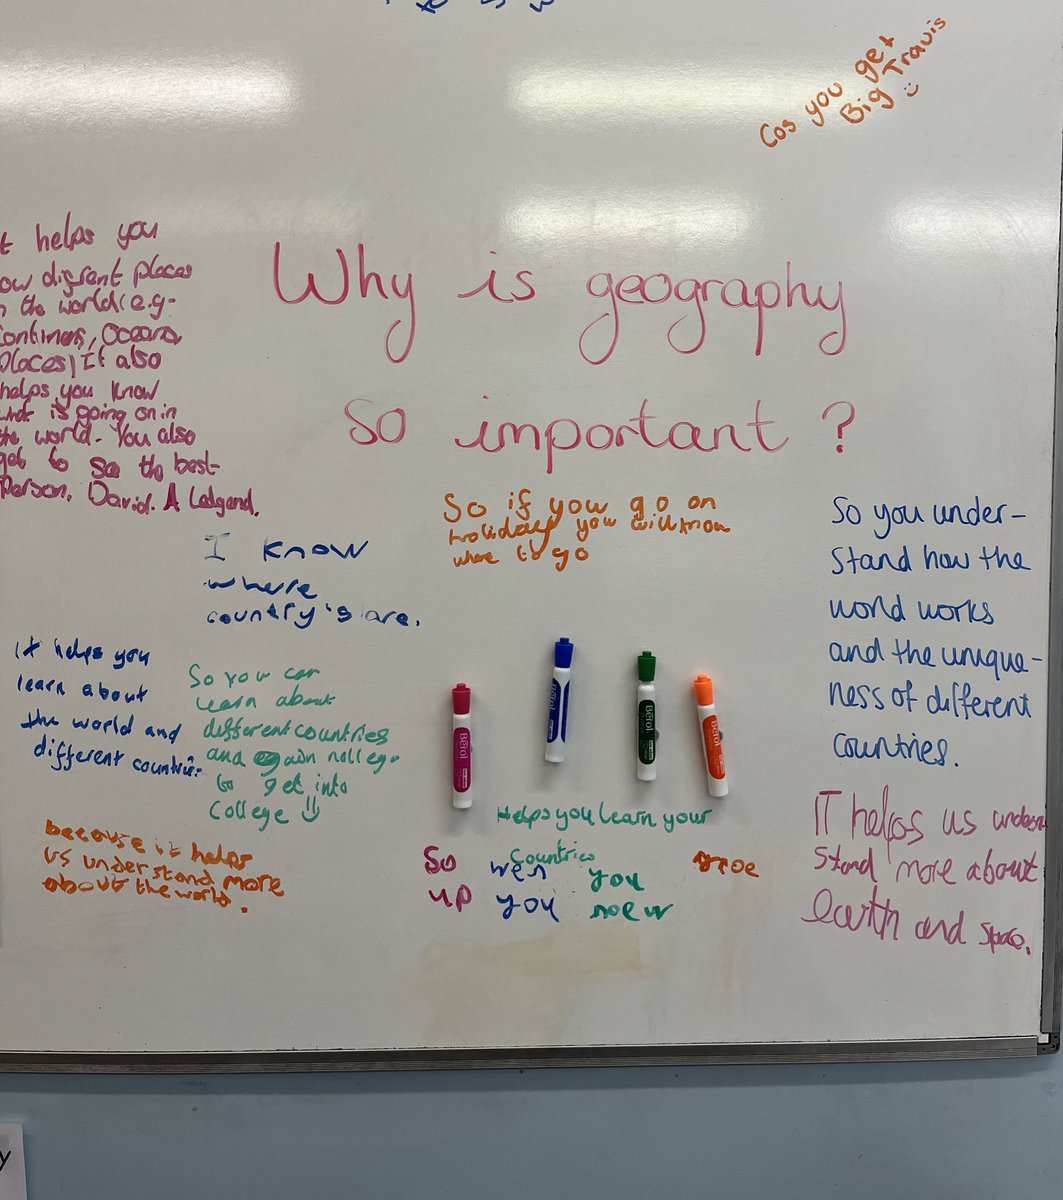 Cos you get
Big Travis
Why is geography
so important?
t helps you
ow different places
n the world (e.g-
continens, Oceans
places) It also
helps you know
what is going on in
the world. You also
get to see the best
Person. David. A Ledgand.
I know
where
country's are.
So if you go on
holiday you will know
where to go
So you under-
stand how the
world works
and the unique-
ness of different
countries.
it helps you
learn about
the world and
different countries
So you can
learn about
different countries
and gain nollege
to get into
College
because it helps
us understand more
about the world.
Berol
Berol
Berol
Berol
Helps you learn your
Countries
So wen you groe
up you noew
IT helps us under
stand more about
Earth and space.
y